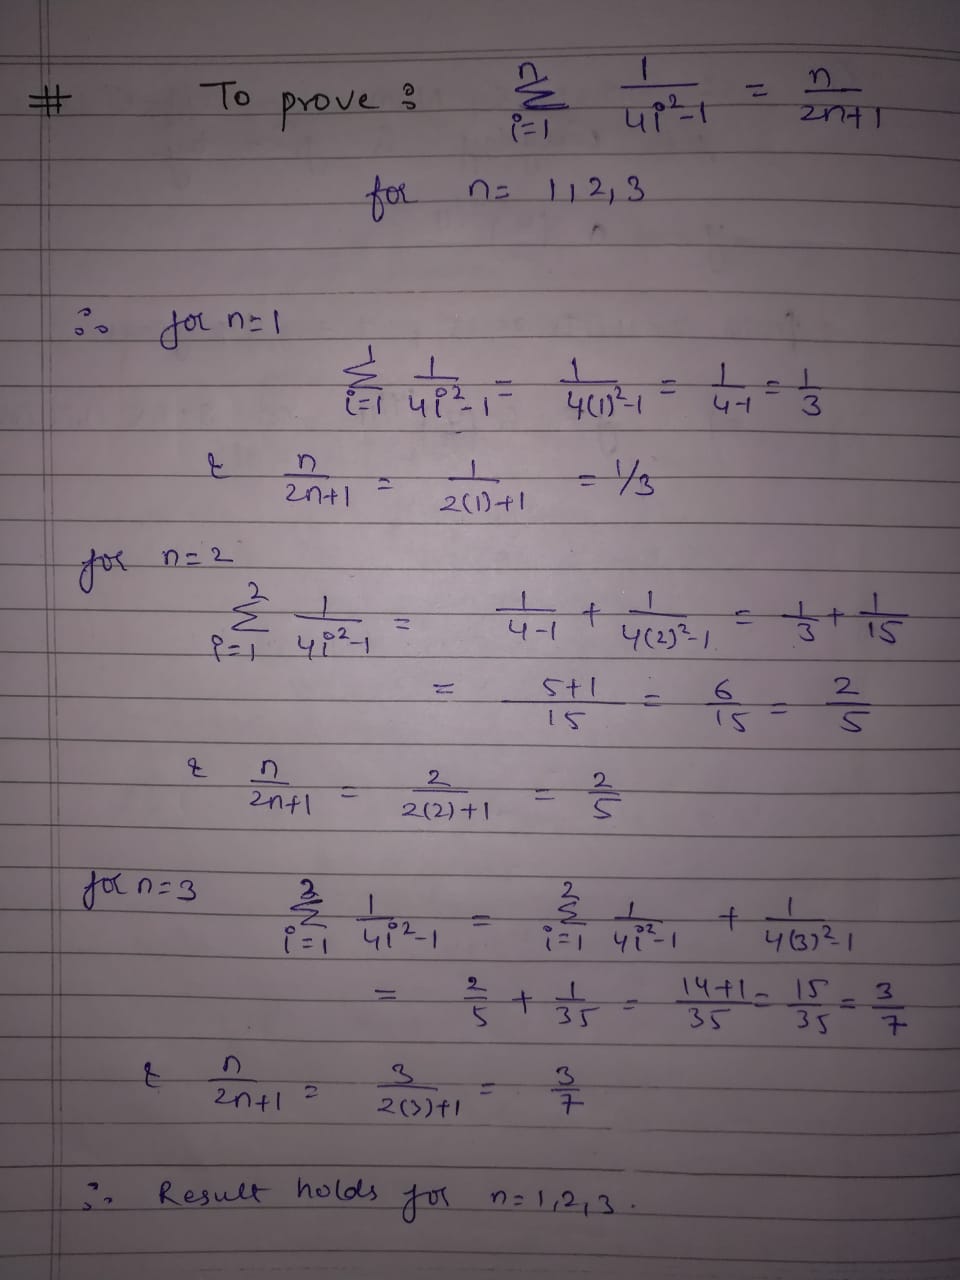 # To prove : n∑i=1 1/(4i²-1) = n/(2n+1)
for n = 1, 2, 3
∴ for n=1
1∑i=1 1/(4i²-1) = 1/(4(1)²-1) = 1/(4-1) = 1/3
& n/(2n+1) = 1/(2(1)+1) = 1/3
for n=2
2∑i=1 1/(4i²-1) = 1/(4-1) + 1/(4(2)²-1) = 1/3 + 1/15
= (5+1)/15 = 6/15 = 2/5
& n/(2n+1) = 2/(2(2)+1) = 2/5
for n=3 3∑i=1 1/(4i²-1) = 2∑i=1 1/(4i²-1) + 1/(4(3)²-1)
= 2/5 + 1/35 = (14+1)/35 = 15/35 = 3/7
& n/(2n+1) = 3/(2(3)+1) = 3/7
∴ Result holds for n=1,2,3.